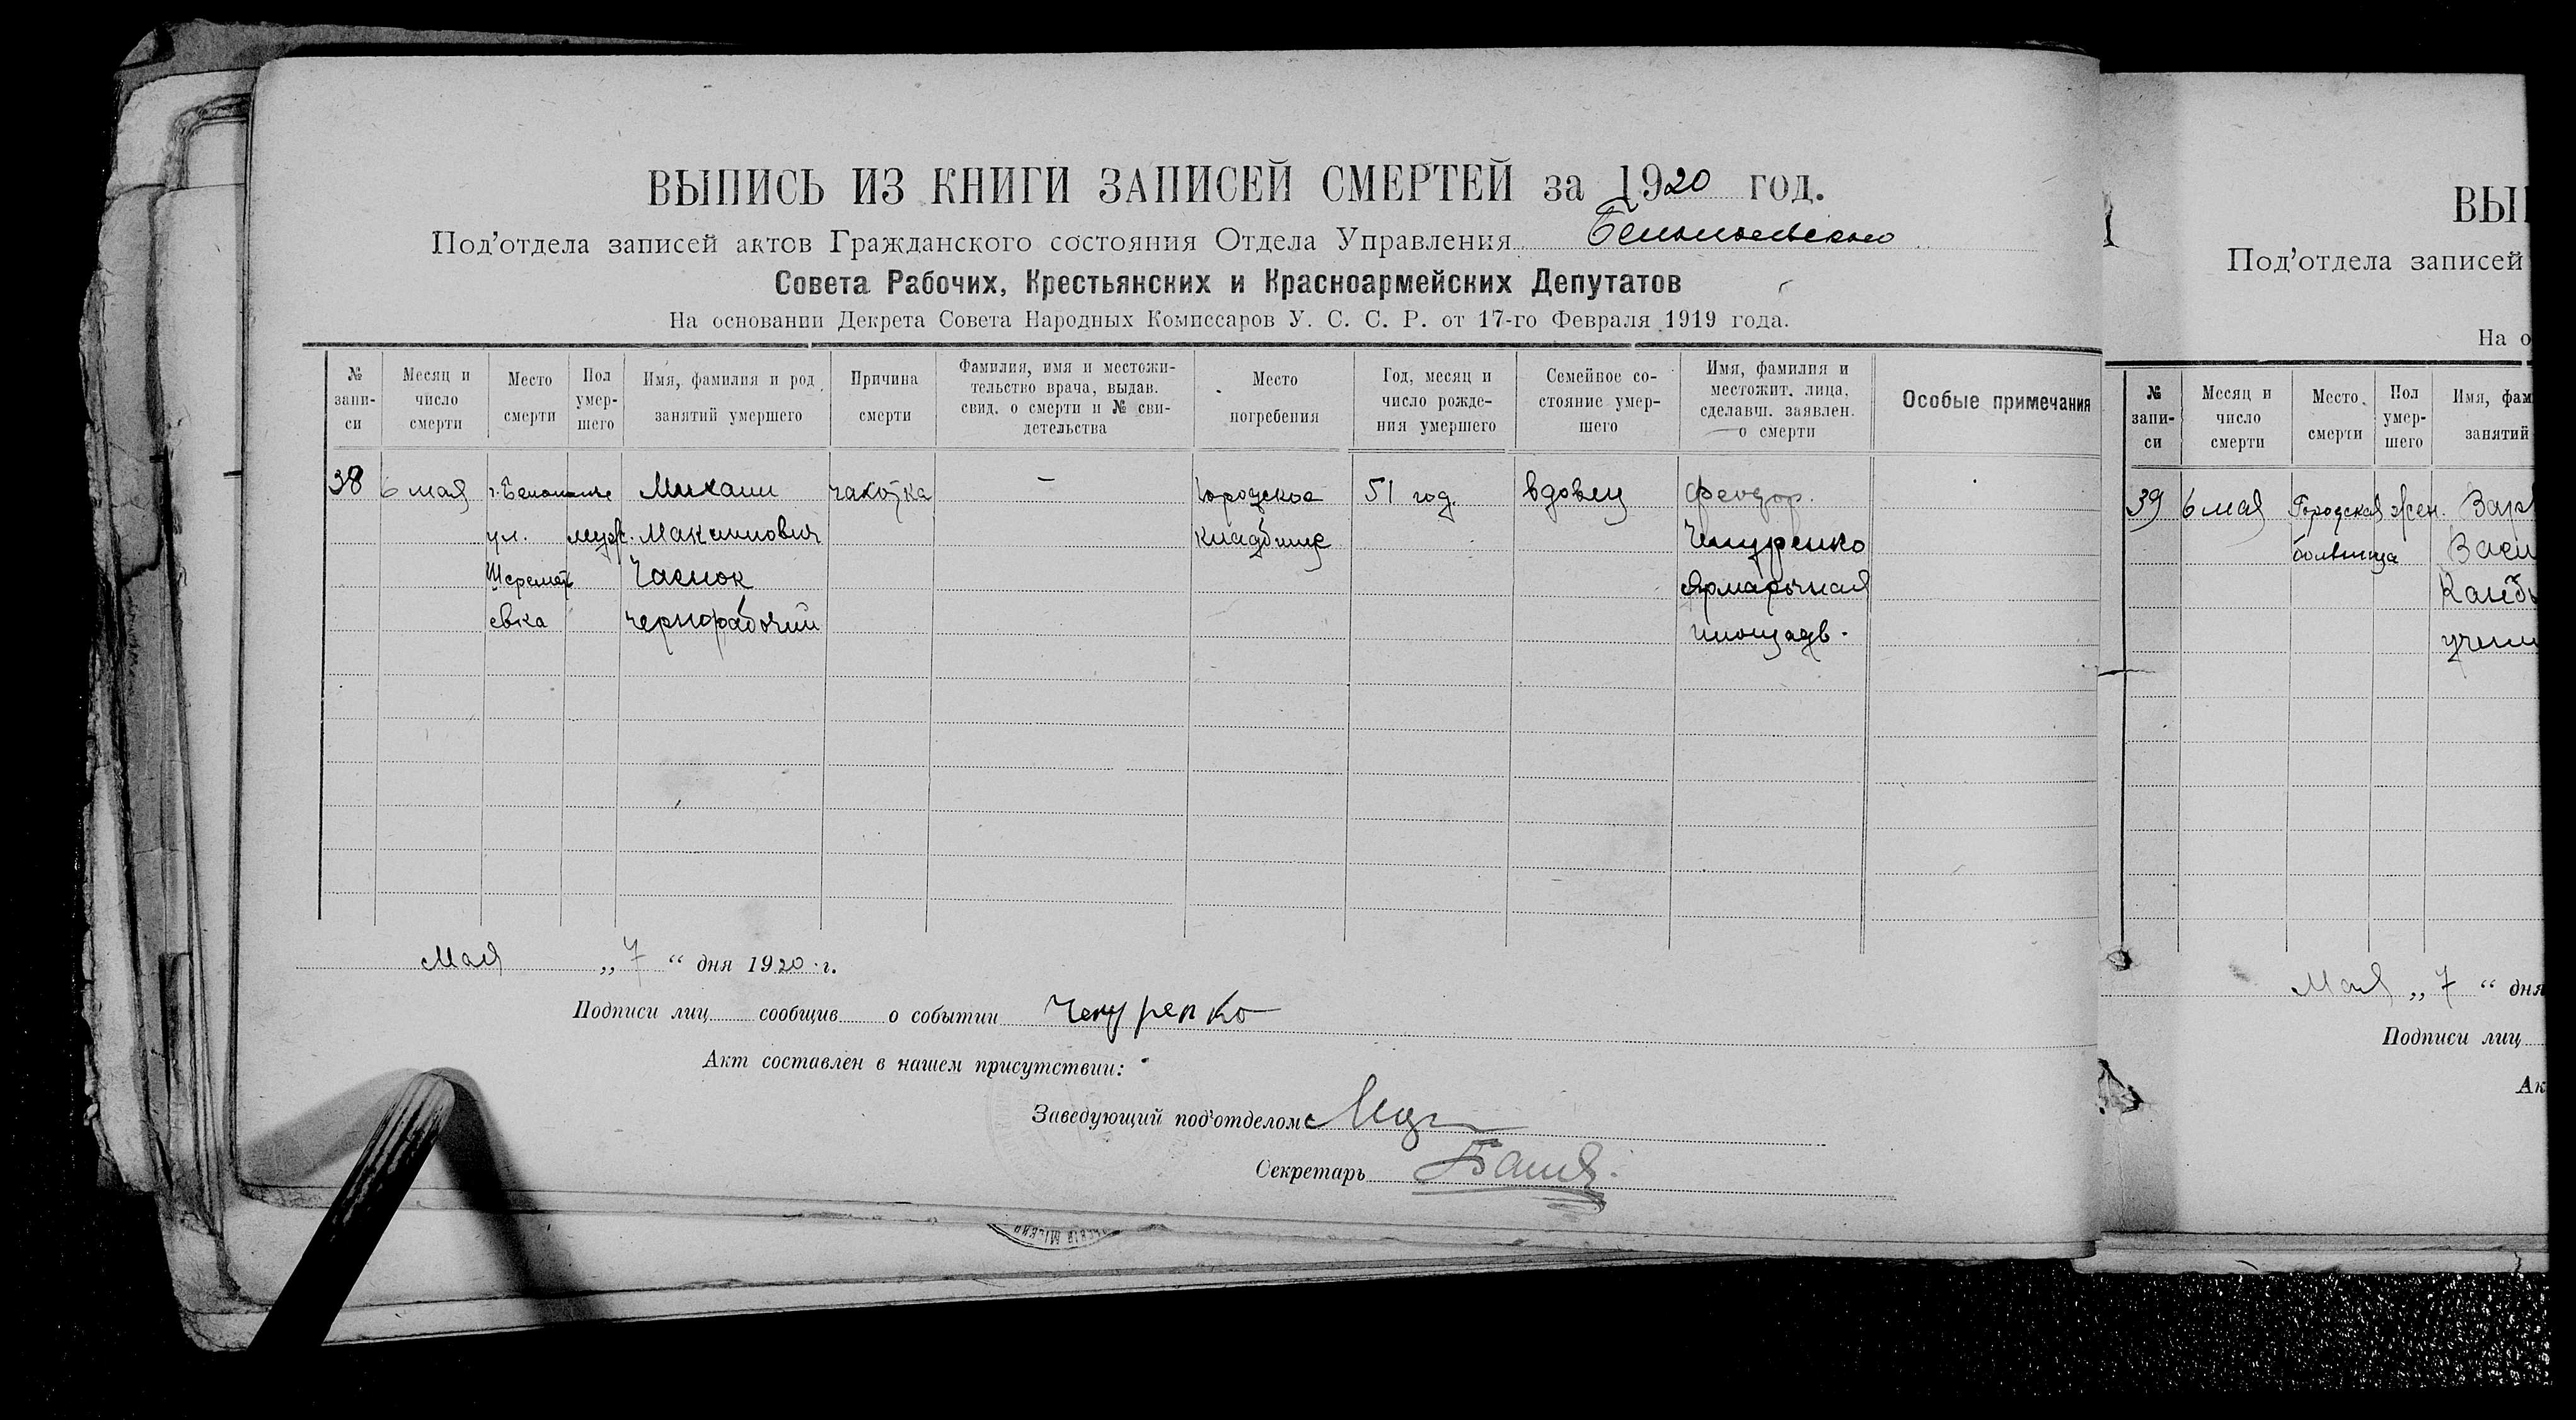 ВЫПИСЬ ИЗ КНИГИ ЗАПИСЕЙ СМЕРТЕЙ за 1920 год.
Под’отдела записей актов Гражданского состояния Отдела Управления Белопольского
Совета Рабочих, Крестьянских и Красноармейских Депутатов
На основании Декрета Совета Народных Комиссаров У. С. С. Р. от 17-го Февраля 1919 года.
№ запи-
си
Месяц и
число
смерти
Место
смерти
Пол
умер-
шего
Имя, фамилия и род
занятий умершего
Причина
смерти
Фамилия, имя и местожи-
тельство врача, выдав.
свид. о смерти и № сви-
детельства
Место
погребения
Год, месяц и
число рожде-
ния умершего
Семейное со-
стояние умер-
шего
Имя, фамилия и
местожит. лица,
сделавш. заявлен.
о смерти
Особые примечания
38
6 мая
г. Белополье
ул.
Шереметь
евка
муж.
Михаил
Максимович
Часнок
чернорабочий
чахотка
—
Городское
кладбище
51 год.
вдовец
Феодор.
Чепуренко
Ярмарочная
площадь.
Мая „7“ дня 1920 г.
Подписи лиц сообщив о событии Чепуренко
Акт составлен в нашем присутствии:
Заведующий под’отделом
Секретарь
ВЫП
Под’отдела записей
На о
№
запи-
си
Месяц и
число
смерти
Место
смерти
Пол
умер-
шего
Имя, фам
занятий
39
6 мая
Городская
больница
жен.
Варв
Васи
учени
Мая „7“ дня
Подписи лиц
Ак